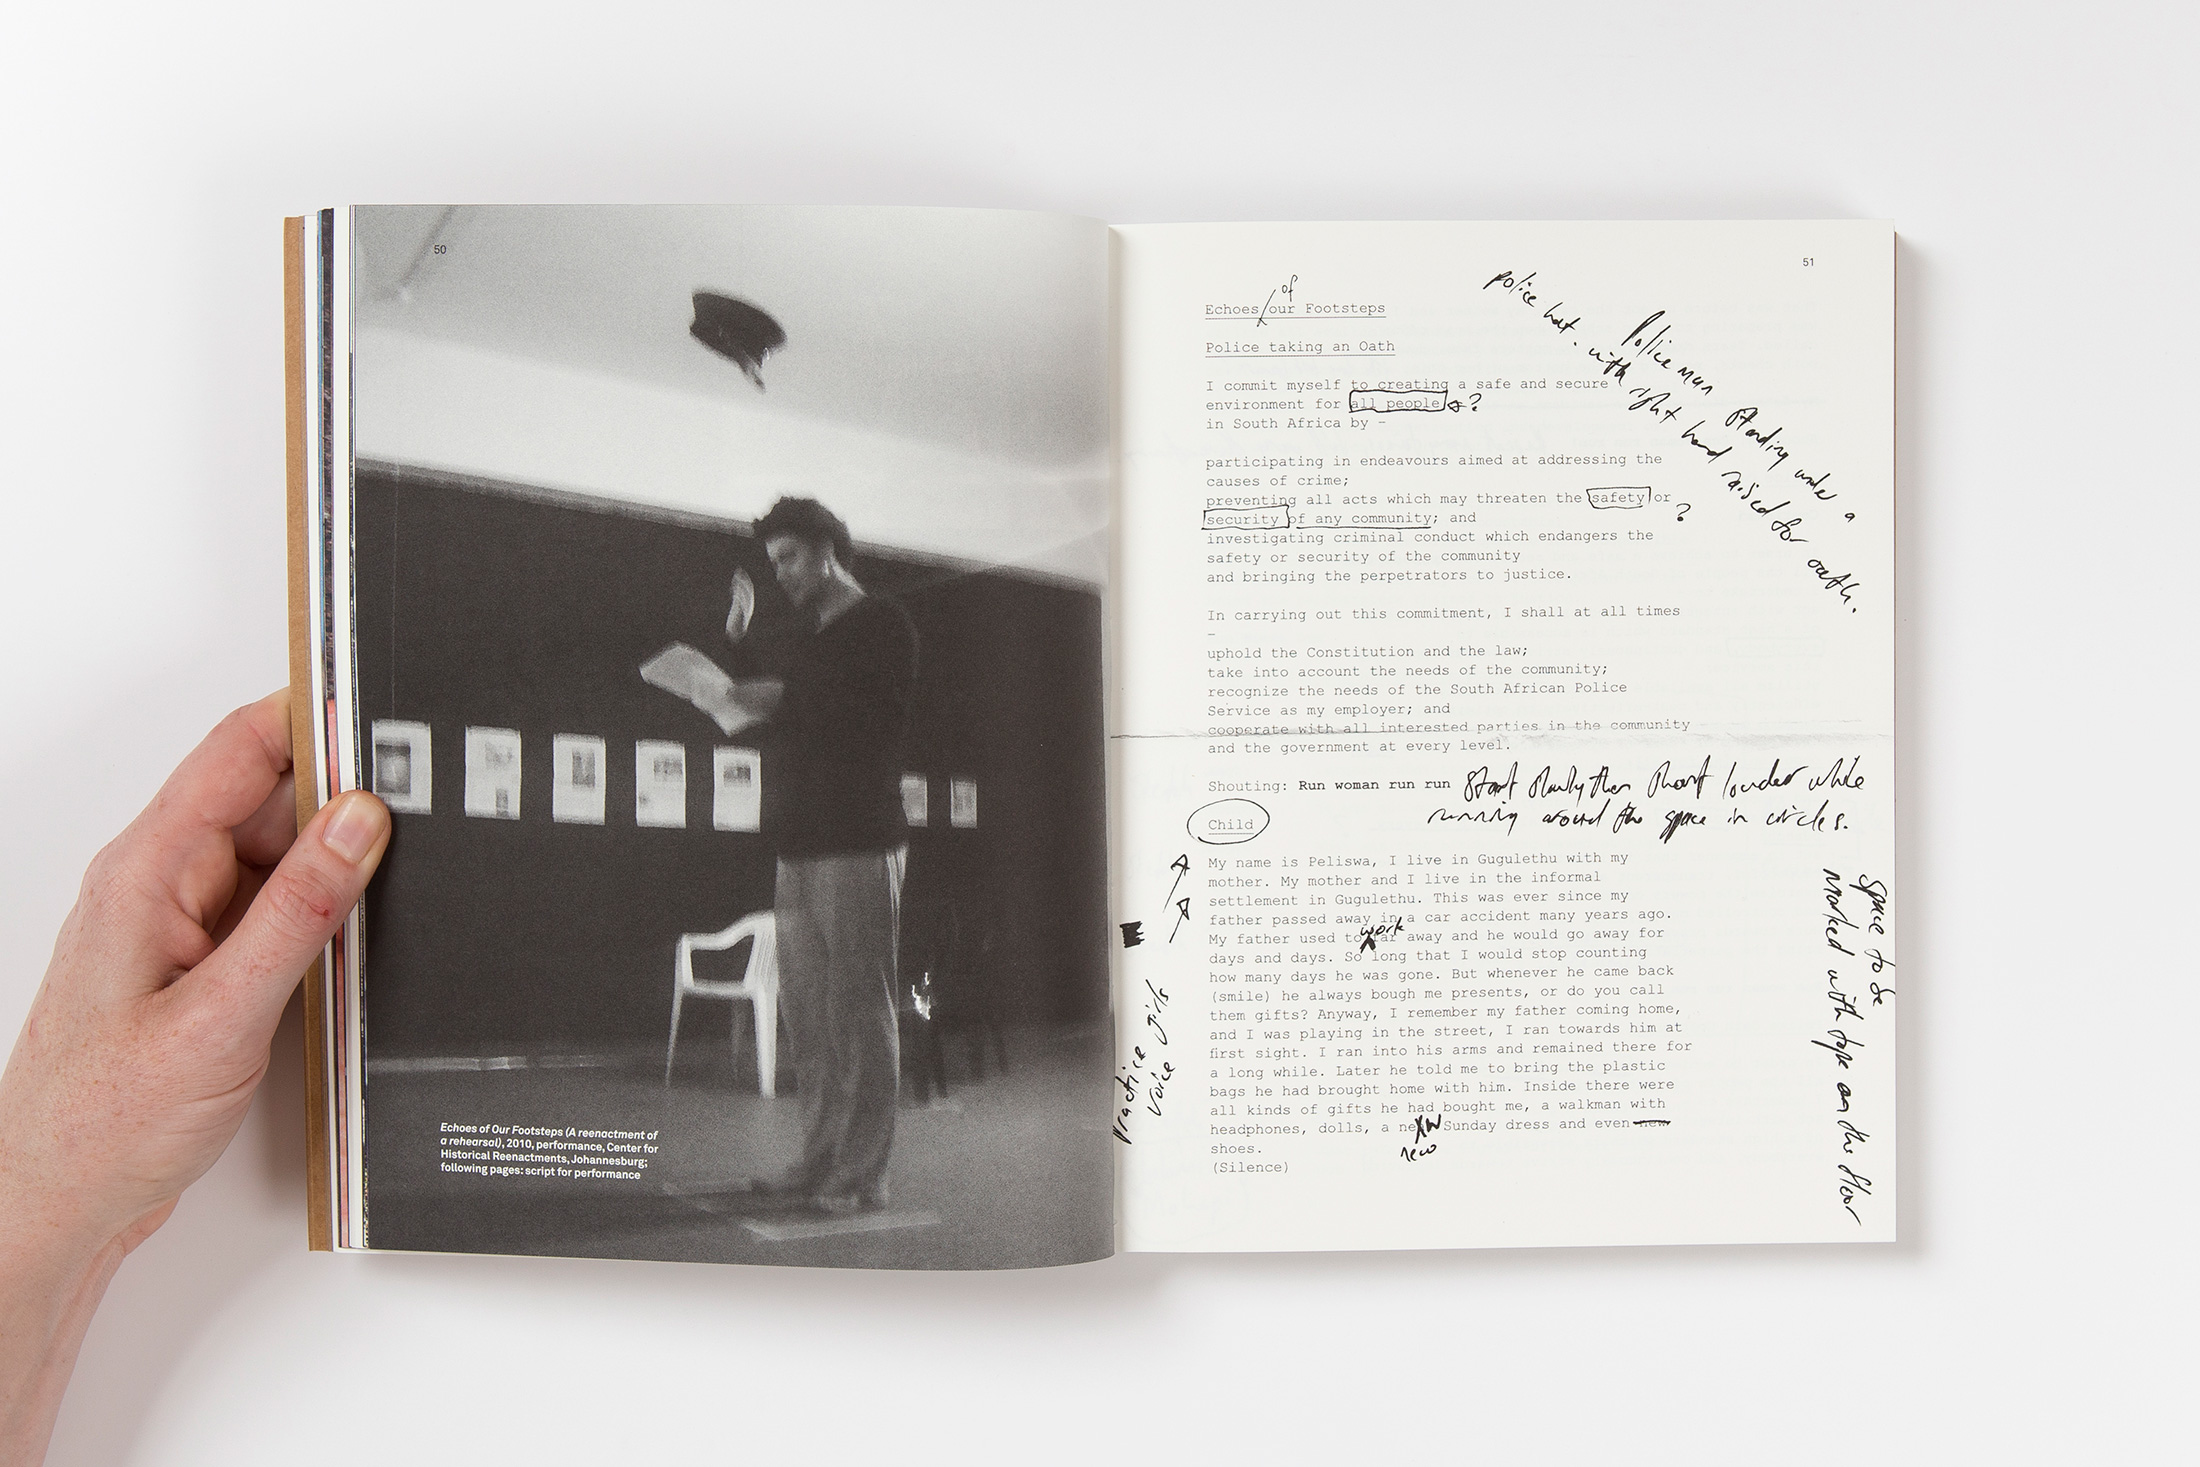 50
Echoes of Our Footsteps (A reenactment of
a rehearsal), 2010, performance, Center for
Historical Reenactments, Johannesburg;
following pages: script for performance
51
of
Echoes/our Footsteps
Police taking an Oath
I commit myself to creating a safe and secure
environment for all people ?
in South Africa by –
participating in endeavours aimed at addressing the
causes of crime;
preventing all acts which may threaten the safety or
security of any community; and ?
investigating criminal conduct which endangers the
safety or security of the community
and bringing the perpetrators to justice.
In carrying out this commitment, I shall at all times
–
uphold the Constitution and the law;
take into account the needs of the community;
recognize the needs of the South African Police
Service as my employer; and
cooperate with all interested parties in the community
and the government at every level.
Policeman standing under a
police hat. with right hand raised for oath.
Shouting: Run woman run run Start slowly then shout louder while
running around the space in circles.
Child
My name is Peliswa, I live in Gugulethu with my
mother. My mother and I live in the informal
settlement in Gugulethu. This was ever since my
father passed away in a car accident many years ago.
work
My father used to far away and he would go away for
days and days. So long that I would stop counting
how many days he was gone. But whenever he came back
(smile) he always bough me presents, or do you call
them gifts? Anyway, I remember my father coming home,
and I was playing in the street, I ran towards him at
first sight. I ran into his arms and remained there for
a long while. Later he told me to bring the plastic
bags he had brought home with him. Inside there were
all kinds of gifts he had bought me, a walkman with
headphones, dolls, a new Sunday dress and even new
new
shoes.
(Silence)
Practice
voice girl
space to be
marked with tape on the floor